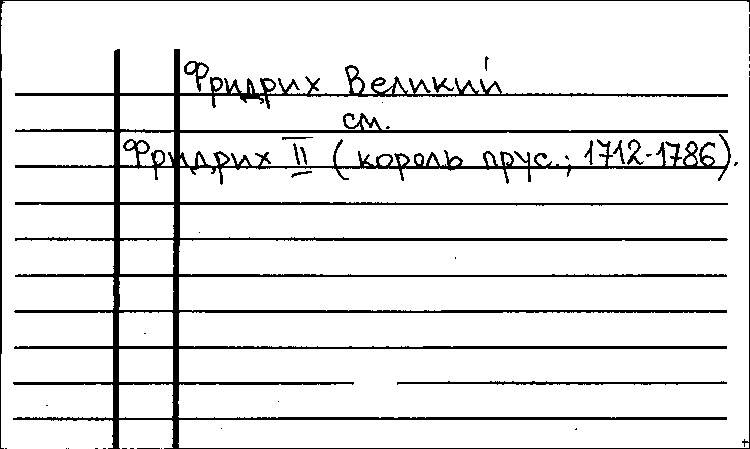 Фридрих Великий
см.
Фридрих II (король прус.; 1712-1786).